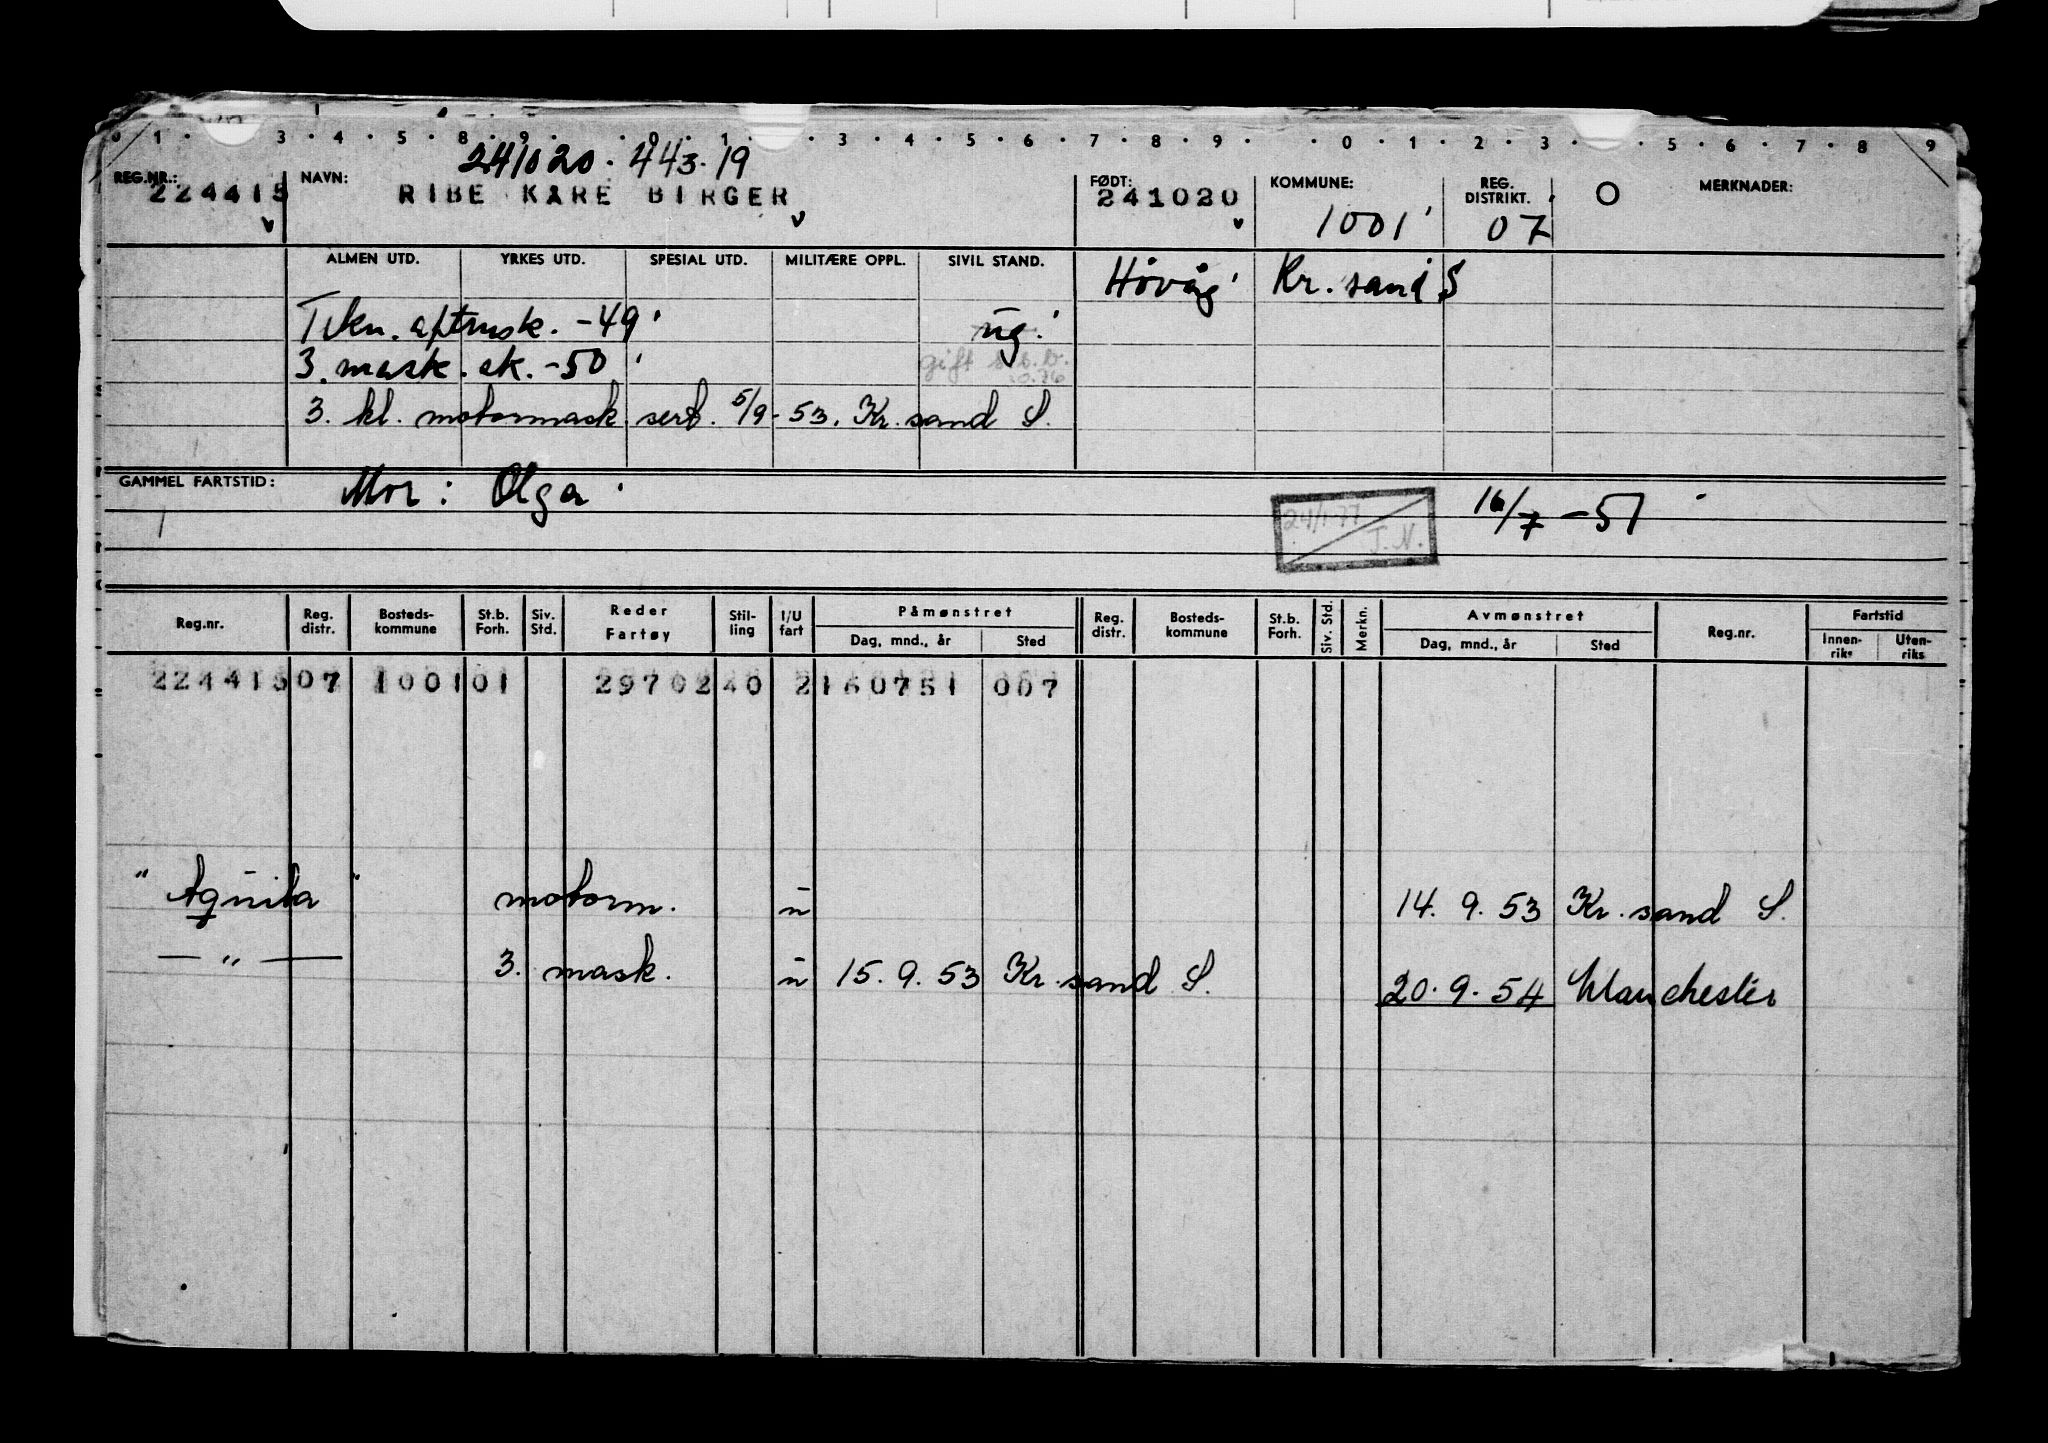 0 1 3 4 5 8 9 0 1 3 4 5 6 7 8 9 0 1 2 3 5 6 7 8 9
241020. 443.19
REG.NR.: NAVN: FØDT: KOMMUNE: REG. DISTRIKT. O MERKNADER:
224415 RIBE KARE BIRGER 241020 1001 07
ALMEN UTD. YRKES UTD. SPESIAL UTD. MILITÆRE OPPL. SIVIL STAND. Høvåg Kr. sand S
Tekn. aftensk. -49 ug.
3. mask. sk. -50 gift
3. kl. motormask. sert. 5/9-53. Kr. sand S.
GAMMEL FARTSTID: Mor: Olga 16/7-51
24/1-77 T.N.
Reg.nr. Reg. distr. Bosteds-kommune St.b. Forh. Siv. Std. Reder Fartøy Stil-ling I/U fart Påmønstret Reg. distr. Bosteds-kommune St.b. Forh. Siv. Std. Merkn. Avmønstret Reg.nr. Fartstid
Dag, mnd., år Sted Dag, mnd., år Sted Innen-riks Uten-riks
224415 07 1001 01 29702 40 2 160751 007
"Aquila" motorm. u 14. 9. 53 Kr. sand S.
— " — 3. mask. u 15. 9. 53 Kr. sand S. 20. 9. 54 Manchester